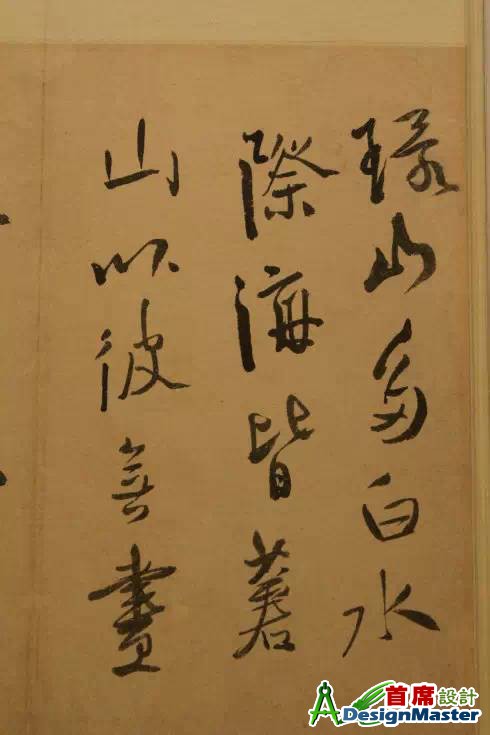 環山多白水
際海皆蒼
山以彼無盡
首席設計
DesignMaster